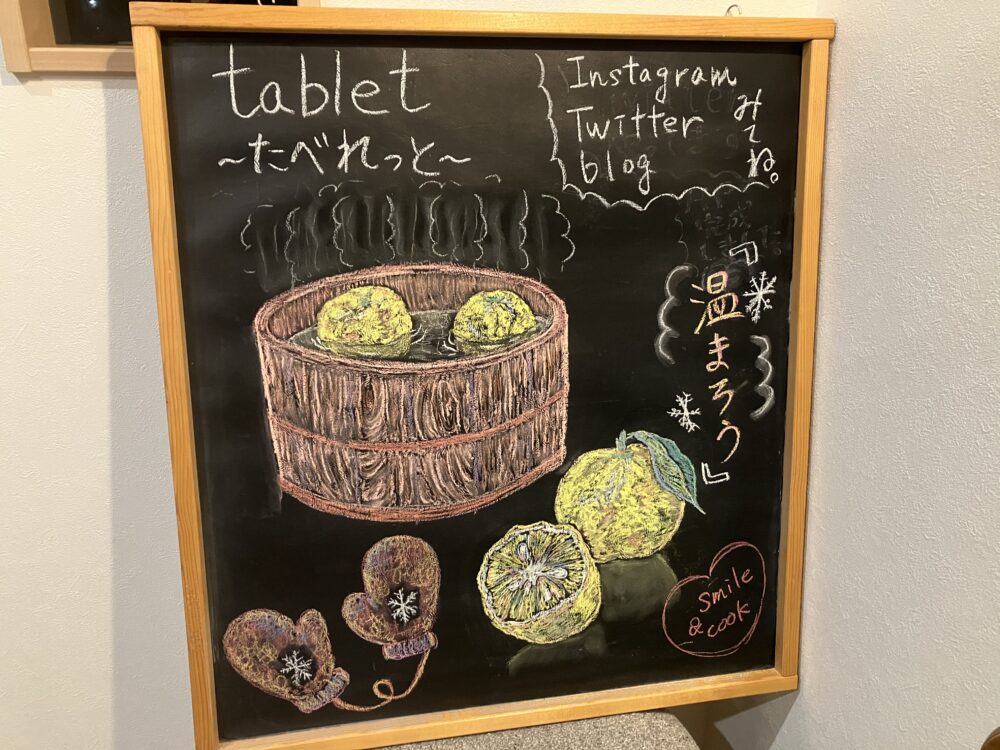 tablet
～たべれっと～
Instagram
Twitter
blog
みてね。
『温まろう』
smile
& cook